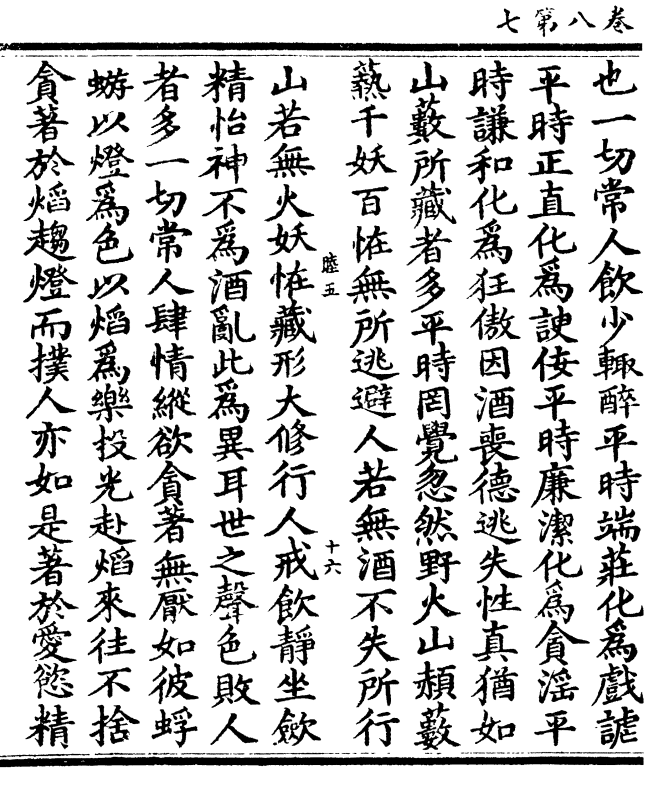 卷八第七
也一切常人飲少輙醉平時端莊化為戲謔
平時正直化為諛佞平時廉潔化為貪滛平
時謙和化為狂傲因酒喪德逃失性真猶如
山藪所藏者多平時罔覺忽然野火山頳藪
爇千妖百恠無所逃避人若無酒不失所行
睦五
十六
山若無火妖恠藏形大修行人戒飲靜坐歛
精怡神不為酒亂此為異耳世之聲色敗人
者多一切常人肆情縱欲貪著無厭如彼蜉
蝣以燈為色以焰為樂投光赴焰來往不捨
貪著於焰趨燈而撲人亦如是著於愛慾精